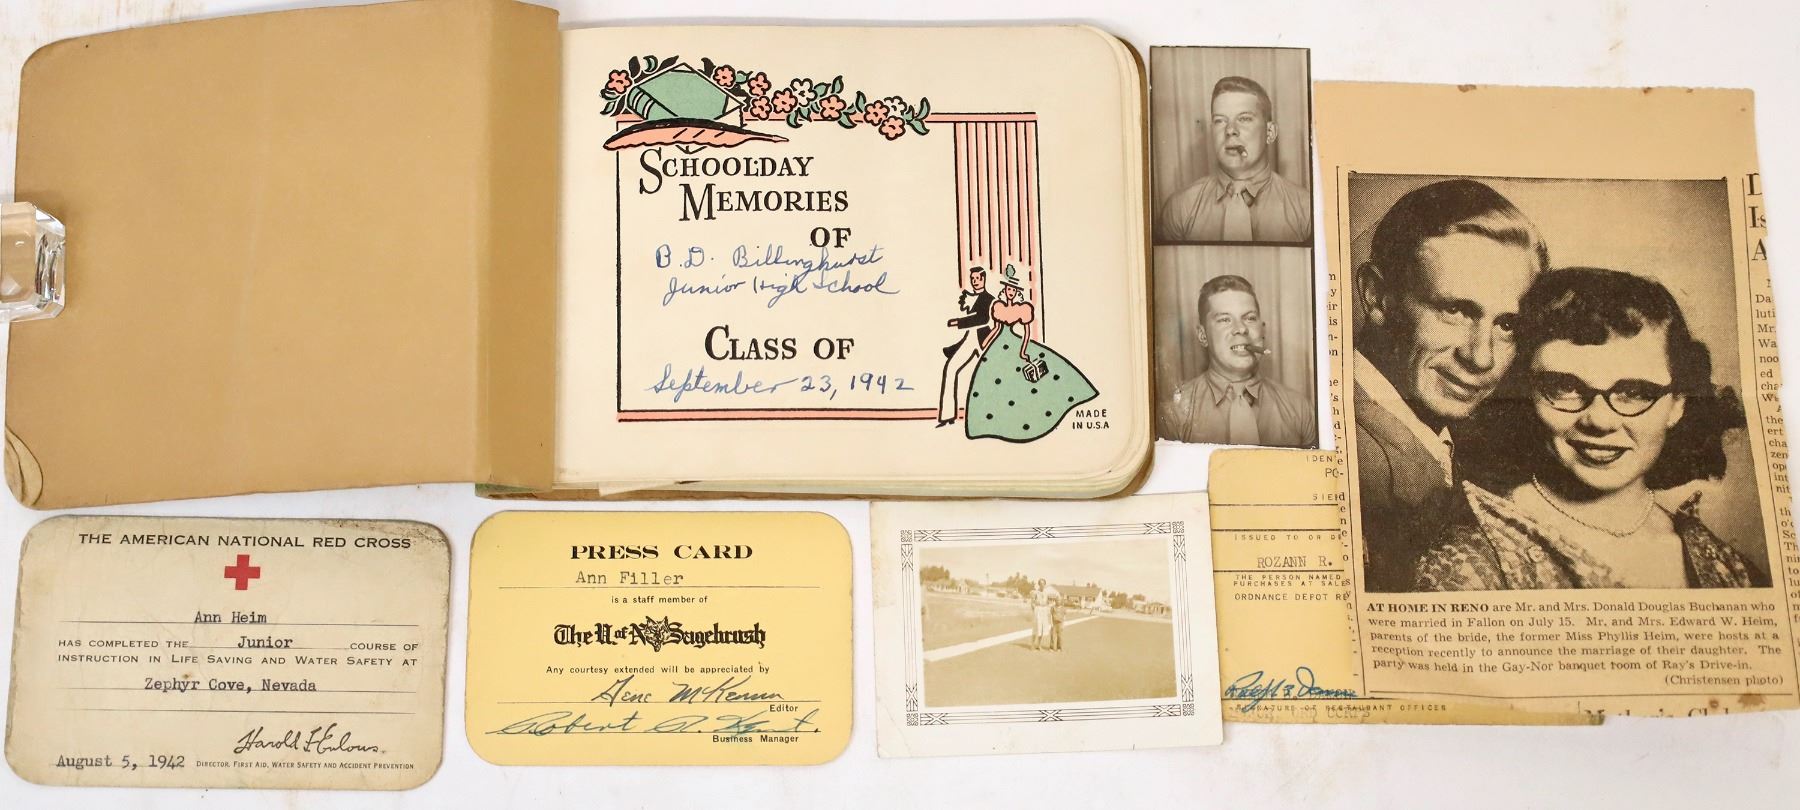 SCHOOLDAY
MEMORIES
OF
B.D. Billinghurst
Junior High School
CLASS OF
September 23, 1942
MADE
IN U.S.A
THE AMERICAN NATIONAL RED CROSS
Ann Heim
HAS COMPLETED THE Junior COURSE OF
INSTRUCTION IN LIFE SAVING AND WATER SAFETY AT
Zephyr Cove, Nevada
Harold F Enlows.
August 5, 1942 DIRECTOR, FIRST AID, WATER SAFETY AND ACCIDENT PREVENTION
PRESS CARD
Ann Filler
is a staff member of
The U. of N. Sagebrush
Any courtesy extended will be appreciated by
Gene McKenna
Editor
Robert A.
Business Manager
IDEN
PO-
ISSUED TO OR
ROZANN R.
THE PERSON NAMED
PURCHASES AT SALE
ORDNANCE DEPOT RE
SIGNATURE OF RESTAURANT OFFICER
AT HOME IN RENO are Mr. and Mrs. Donald Douglas Buchanan who
were married in Fallon on July 15. Mr. and Mrs. Edward W. Heim,
parents of the bride, the former Miss Phyllis Heim, were hosts at a
reception recently to announce the marriage of their daughter. The
party was held in the Gay-Nor banquet room of Ray's Drive-in.
(Christensen photo)
D
Is
A
Da
luti
Mr.
Wa
noo
ed
cha
We
A
the
ert
cha
zen
op
int
nit